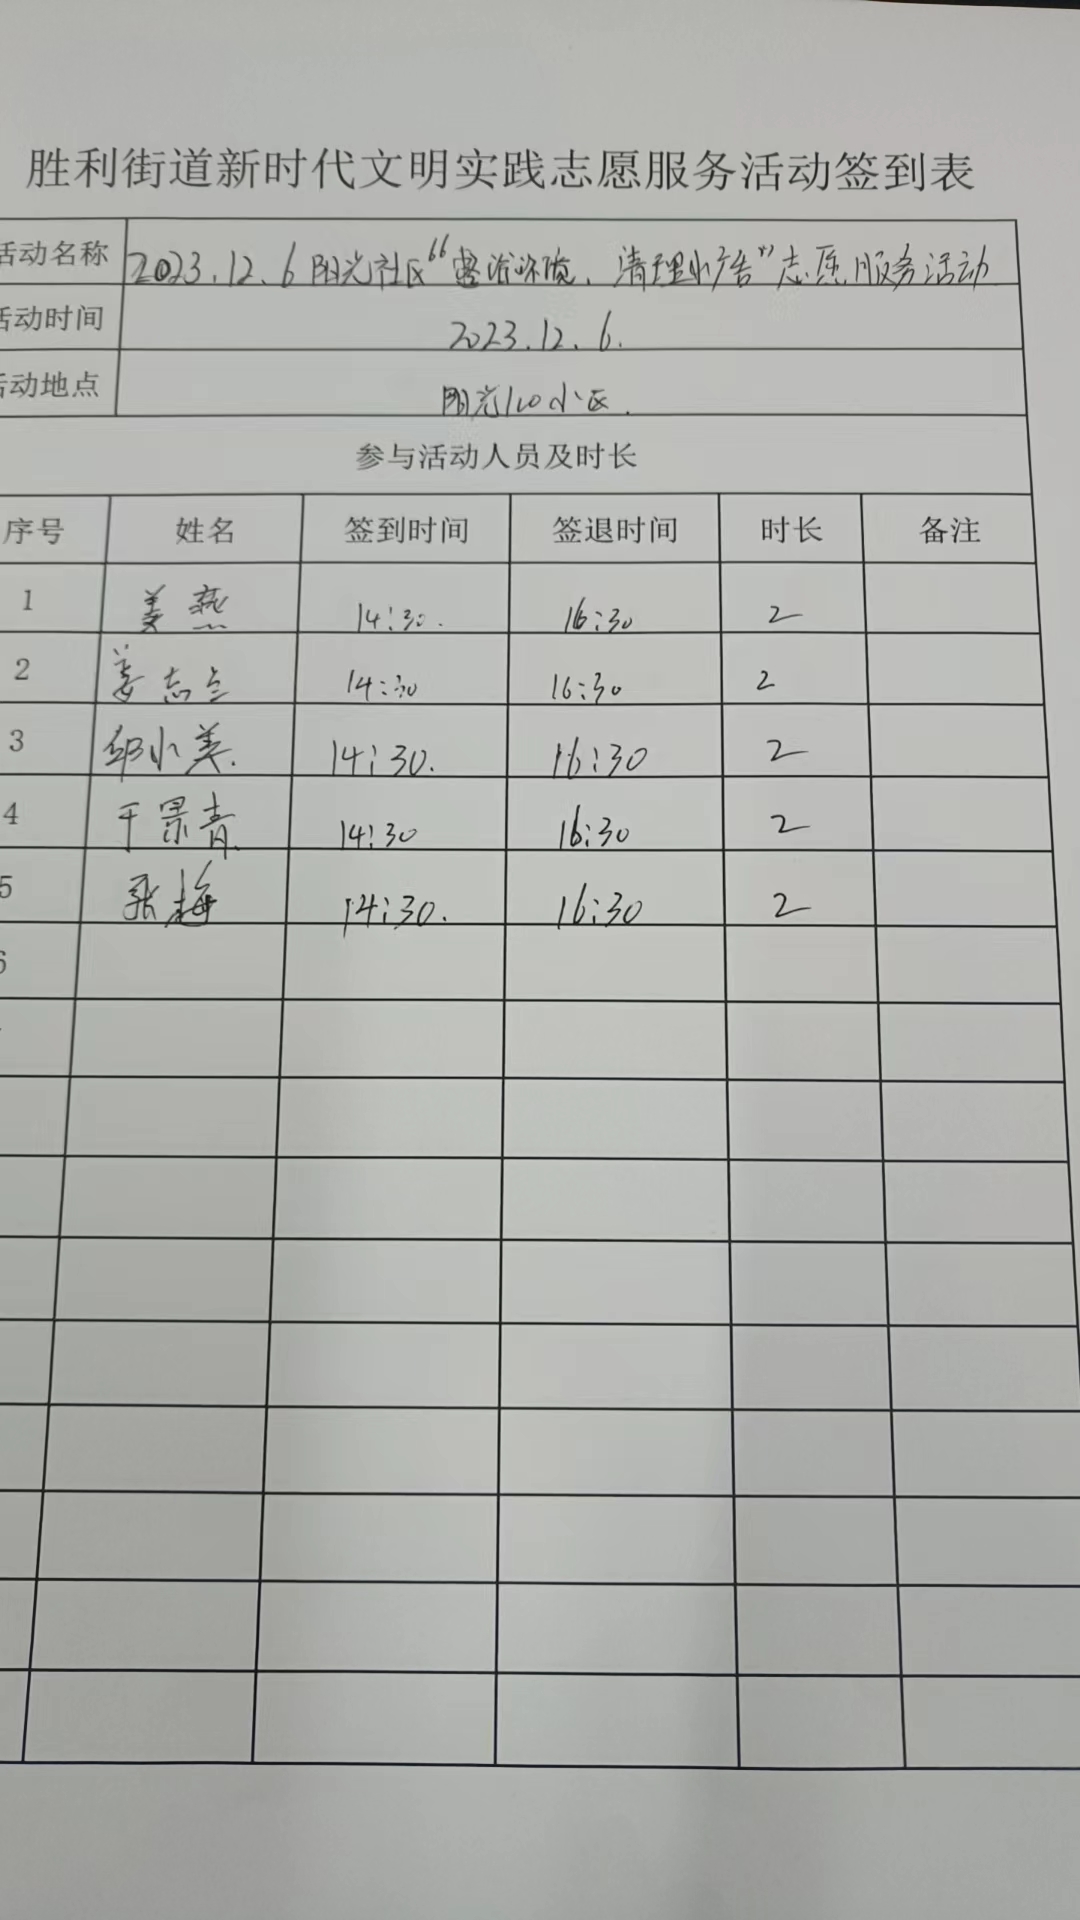 胜利街道新时代文明实践志愿服务活动签到表
活动名称 2023.12.6阳光社区“整治环境、清理小广告”志愿服务活动
活动时间 2023.12.6.
活动地点 阳光100小区.
参与活动人员及时长
序号 姓名 签到时间 签退时间 时长 备注
1 姜燕 14:30. 16:30 2
2 姜志兰 14:30 16:30 2
3 邹小美. 14:30. 16:30 2
4 于景青. 14:30 16:30 2
5 张梅 14:30. 16:30 2
6